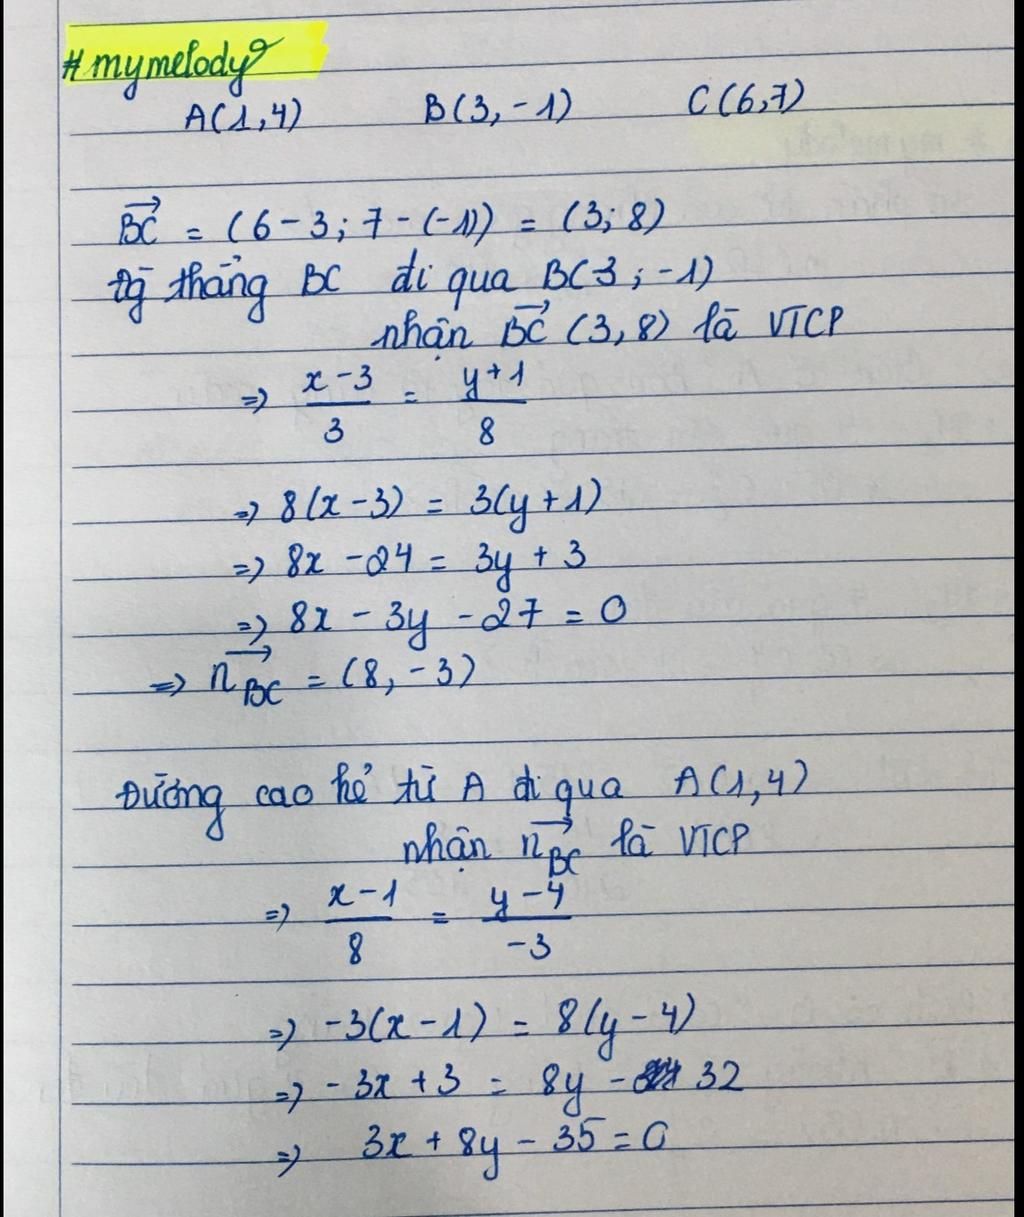 #mymelody
A(1,4) B(3,-1) C(6,7)
BC→ = (6-3; 7-(-1)) = (3;8)
đg thẳng BC đi qua B(3;-1)
nhận BC→ (3,8) là VTCP
=> (x-3)/3 = (y+1)/8
=> 8(x-3) = 3(y+1)
=> 8x - 24 = 3y + 3
=> 8x - 3y - 27 = 0
=> n→BC = (8,-3)
Đường cao kẻ từ A đi qua A(1,4)
nhận n→BC là VTCP
=> (x-1)/8 = (y-4)/-3
=> -3(x-1) = 8(y-4)
=> -3x + 3 = 8y - 32
=> 3x + 8y - 35 = 0